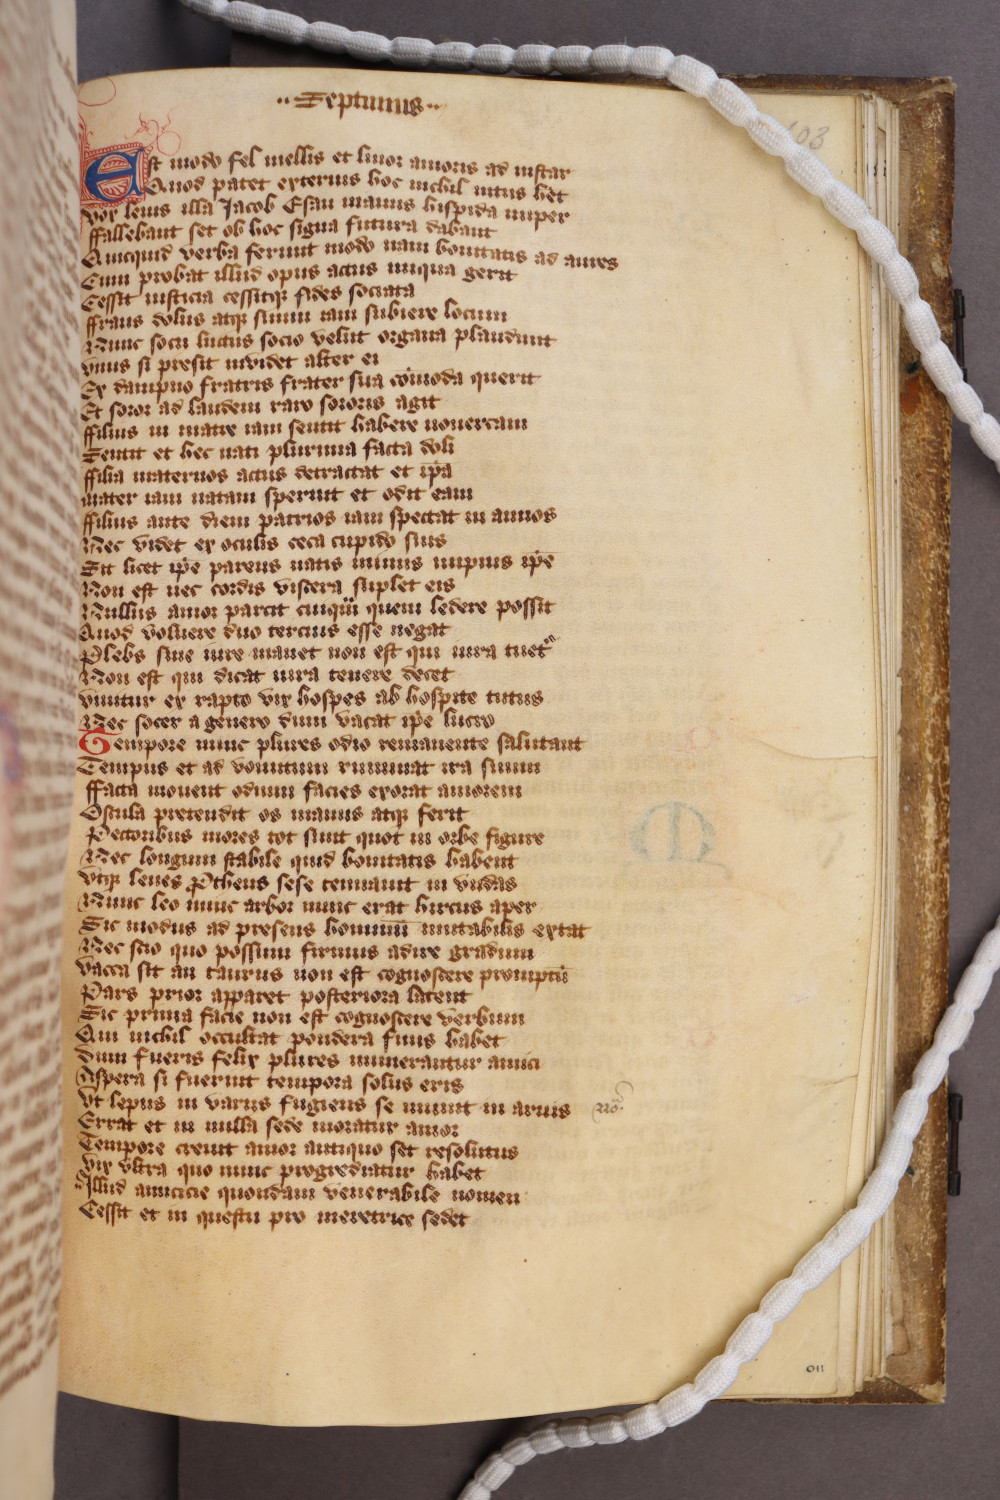 Septimus
103
Est modo fel mellis et liuor amoris ad instar
Quod patet exterius hoc nichil intus het
Vox lenis illa Jacob Esau manus hispida nuper
ffallebant set ob hoc signa futura dabant
Quicquid verba ferunt modo nam bonitatis ad aures
Cum probat illud opus actus iniqua gerit
Cessit iusticia cessitqȝ fides sociata
ffraus dolus atqȝ suum iam subiere locum
Nunc socii luctus socio velut organa plaudunt
vnus si presit invidet alter ei
Ex dampno fratris frater sua comoda querit
Et soror ad laudem raro sororis agit
ffilius in matre iam sentit habere nouercam
Sentit et hec nati plurima facta doli
ffilia maternos actus detractat et ipa
mater iam natam spernit et odit eam
ffilius ante diem patrios iam spectat in annos
Nec videt ex oculis ceca cupido suis
Sit licet ipe parens natis minus impius ipe
Non est nec cordis viscera suplet eis
Nullus amor parcit cuiqm quem ledere possit
Quod voluere duo tercius esse negat
Plebs sine iure manet non est qui iura tuet
Non est qui dicat iura tenere decet
viuitur ex rapto vix hospes ab hospite tutus
Nec socer a genero dum vacat ipe lucro
Tempore nunc plures odio remanente salutant
Tempus et ad vomitum ruminat ira suum
ffacta mouent odium facies exorat amorem
Oscula pretendit os manus atqȝ ferit
Pectoribus mores tot sunt quot in orbe figure
Nec longum stabile quid bonitatis habent
vtqȝ leues Ptheus sese tenuauit in vndas
Nunc leo nunc arbor nunc erat hircus aper
Sic modus ad presens hominum mutabilis extat
Nec scio quo possum firmus adire gradum
vacca sit an taurus non est cognoscere promptu
Pars prior apparet posteriora latent
Sic prima facie non est cognoscere verbum
Qui nichil occultat pondera finis habet
dum fueris felix plures numerantur amici
Aspera si fuerint tempora solus eris
vt lepus in variis fugiens se munit in aruis
Errat et in nulla sede moratur amor
Tempore creuit amor antiquo set resolutus
vix vltra quo nunc progrediatur habet
Illud amicicie quondam venerabile nomen
Cessit et in questu pro meretrice sedet